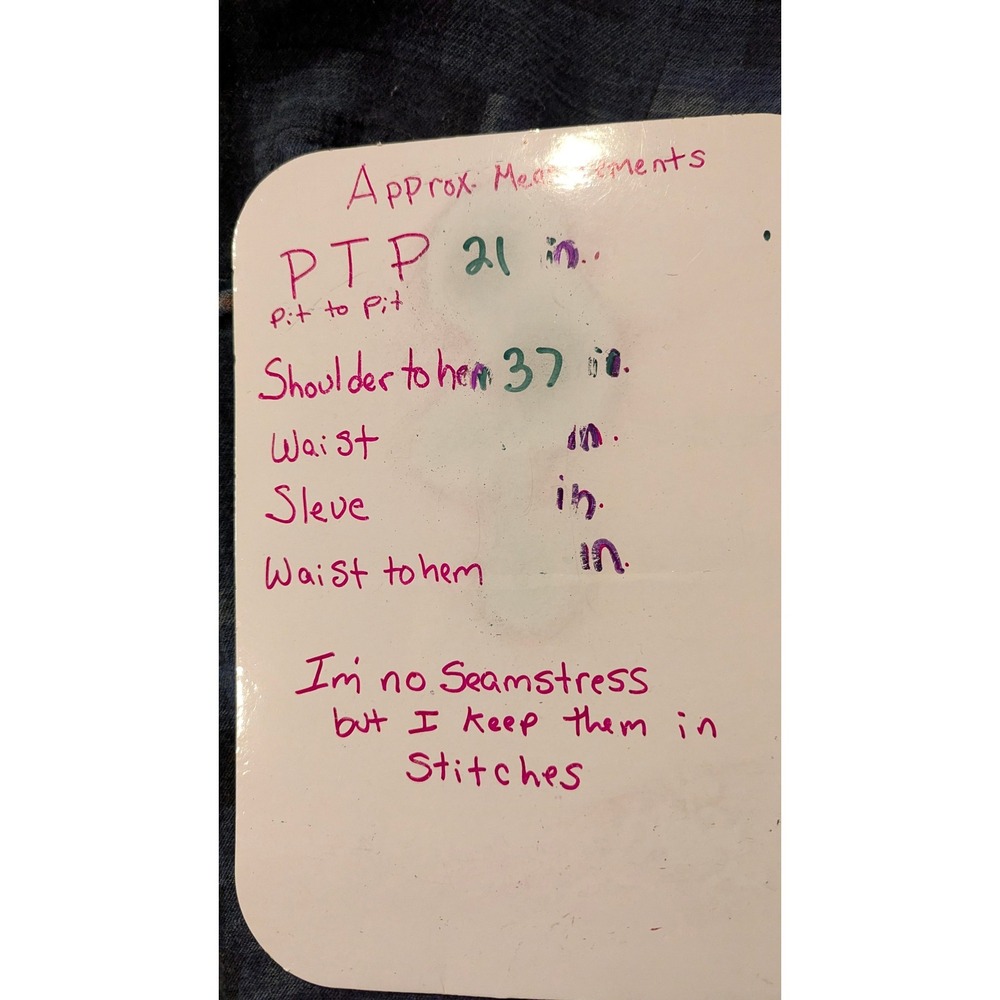 Approx. Measurements
PTP 21 in.
Pit to Pit
Shoulder to hem 37 in.
Waist in.
Sleve in.
Waist to hem in.
I'm no Seamstress
but I keep them in
Stitches